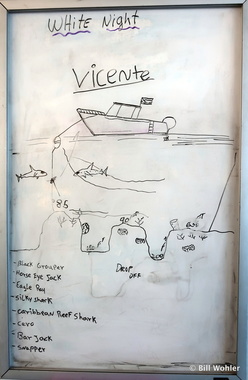 White Night
Vicente
85
90
DROP
OFF
- Black Grouper
- Horse Eye Jack
- Eagle Ray
- Silky shark
- Caribbean Reef Shark
- Cero
- Bar Jack
- Snapper
© Bill Wohler